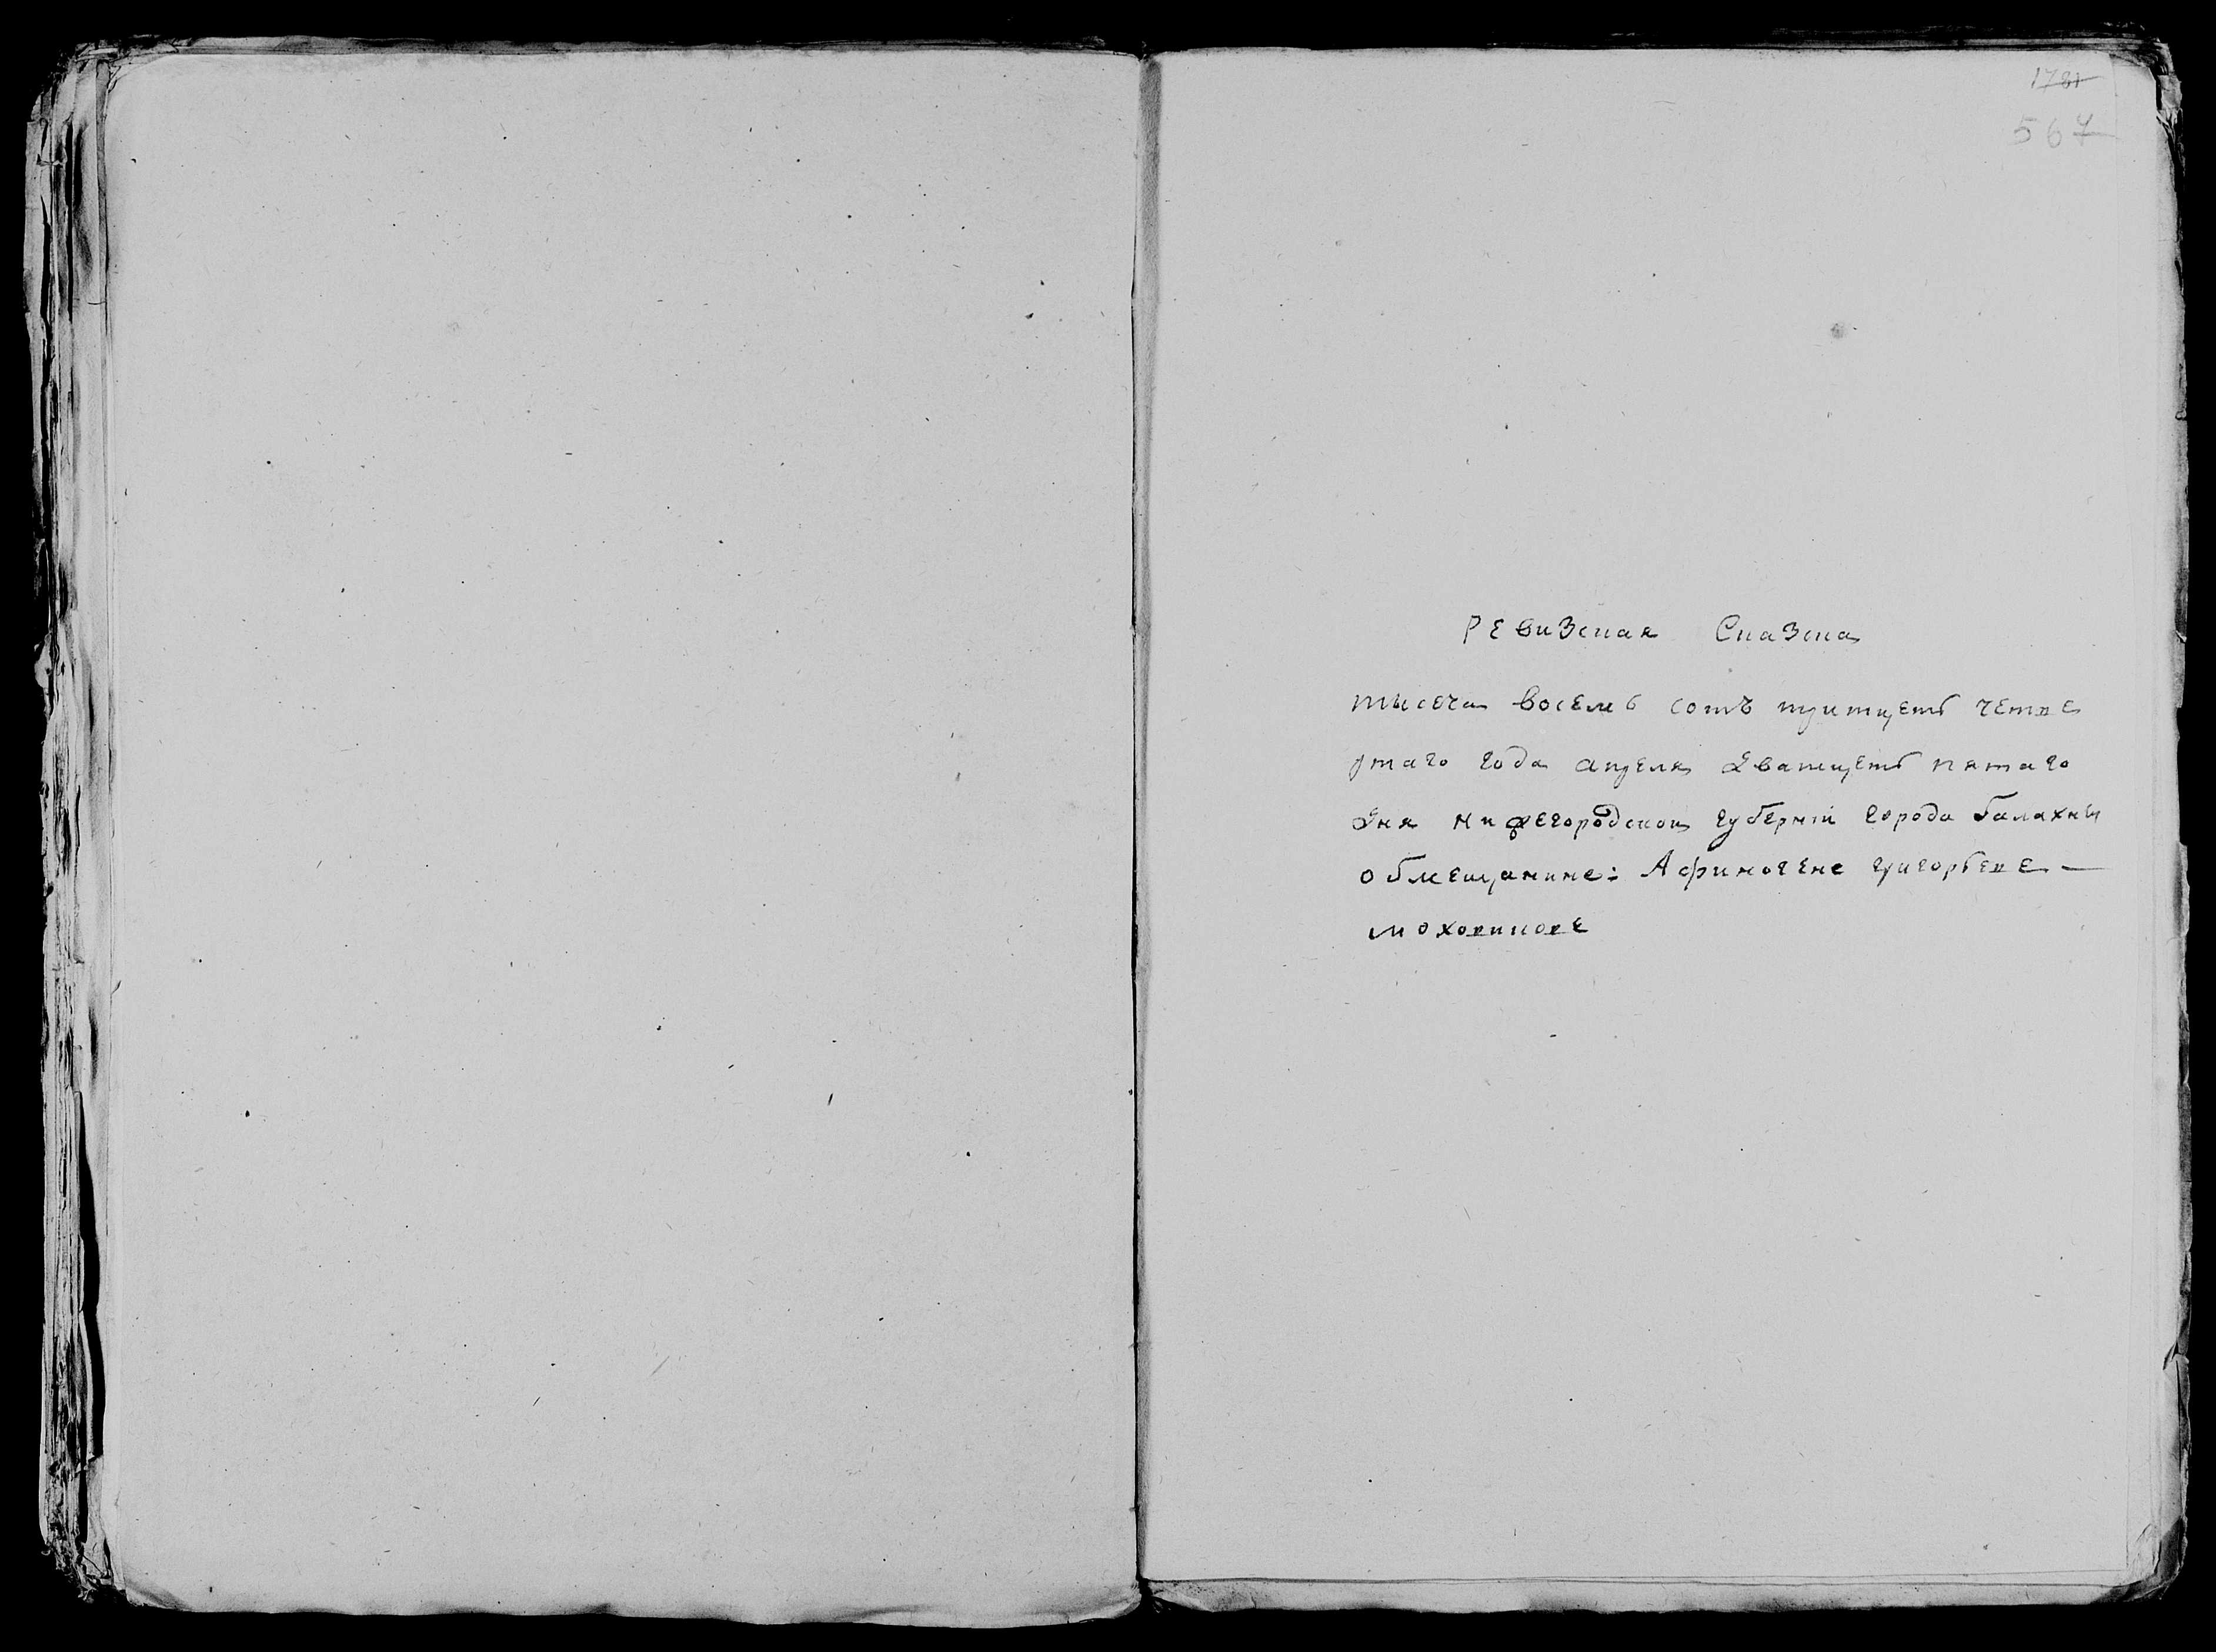 1781
567
Ревизская Сказка
тысеча восемь сотъ тритцеть четве
ртаго года апреля дватцеть пятаго
дня нижегородской губерніи города балахны
обмещанине: Афиногене григорьеве —
моховикове